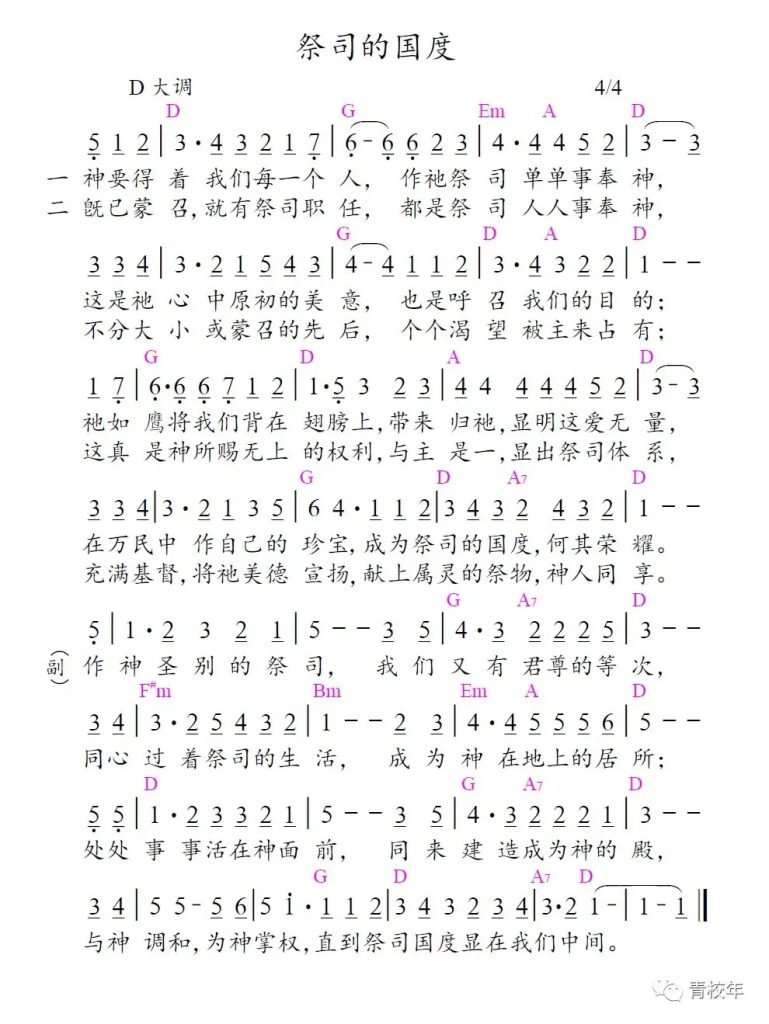 祭司的国度
D 大调 4/4
D G Em A D
5 1 2 | 3 · 4 3 2 1 7 | 6 - 6 6 2 3 | 4 · 4 4 5 2 | 3 - 3
一 神要得 着 我们每一个 人， 作祂祭 司 单单事奉 神，
二 既已蒙 召，就有祭司职 任， 都是祭 司 人人事奉 神，
G D A D
3 3 4 | 3 · 2 1 5 4 3 | 4 - 4 1 1 2 | 3 · 4 3 2 2 | 1 - -
这是祂 心 中原初的美 意， 也是呼 召 我们的目 的；
不分大 小 或蒙召的先 后， 个个渴 望 被主来占 有；
G D A D
1 7 | 6 · 6 6 7 1 2 | 1 · 5 3 2 3 | 4 4 4 4 4 5 2 | 3 - 3
祂如 鹰将我们背在 翅膀上，带来 归祂，显明这爱无 量，
这真 是神所赐无上 的权利，与主 是一，显出祭司体 系，
G D A7 D
3 3 4 | 3 · 2 1 3 5 | 6 4 · 1 1 2 | 3 4 3 2 4 3 2 | 1 - -
在万民中 作自己的 珍宝，成为祭司的国度，何其荣 耀。
充满基督，将祂美德 宣扬，献上属灵的祭物，神人同 享。
G A7 D
5 | 1 · 2 3 2 1 | 5 - - 3 5 | 4 · 3 2 2 2 5 | 3 - -
(副) 作 神 圣 别 的 祭 司， 我 们 又 有 君尊的等 次，
F#m Bm Em A D
3 4 | 3 · 2 5 4 3 2 | 1 - - 2 3 | 4 · 4 5 5 5 6 | 5 - -
同心 过 着祭司的生 活， 成 为 神 在地上的居 所；
D G A7 D
5 5 | 1 · 2 3 3 2 1 | 5 - - 3 5 | 4 · 3 2 2 2 1 | 3 - -
处处 事 事活在神面 前， 同 来 建 造成为神的 殿，
G D A7 D
3 4 | 5 5 - 5 6 | 5 1 · 1 1 2 | 3 4 3 2 3 4 | 3 · 2 1 - | 1 - 1 ‖
与神 调和，为神掌权，直到祭司国度显在我们中间。
青校年